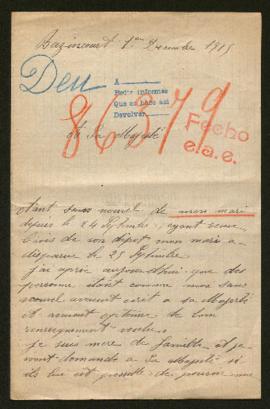 Bazincourt 1er Decembre 1915
Deu
A
Pedir informes
Que se hace así
Devolver
86379
Fecho
e.l.a.e.
A Sa Majesté
étant sans nouvel de mon mari
depuis le 24 Septembre, ayant reçue
avis de son dépôt mon mari a
disparue le 25 Septembre
j'ai appris aujourd'hui que des
personne étant comme moi sans
nouvel avaient écrit a Sa Majesté
et avaient obtenue de bon
renseignement voulu.
je suis mere de famille et je
vient demande a Sa Majesté si
il lui est possible de pouvoir me